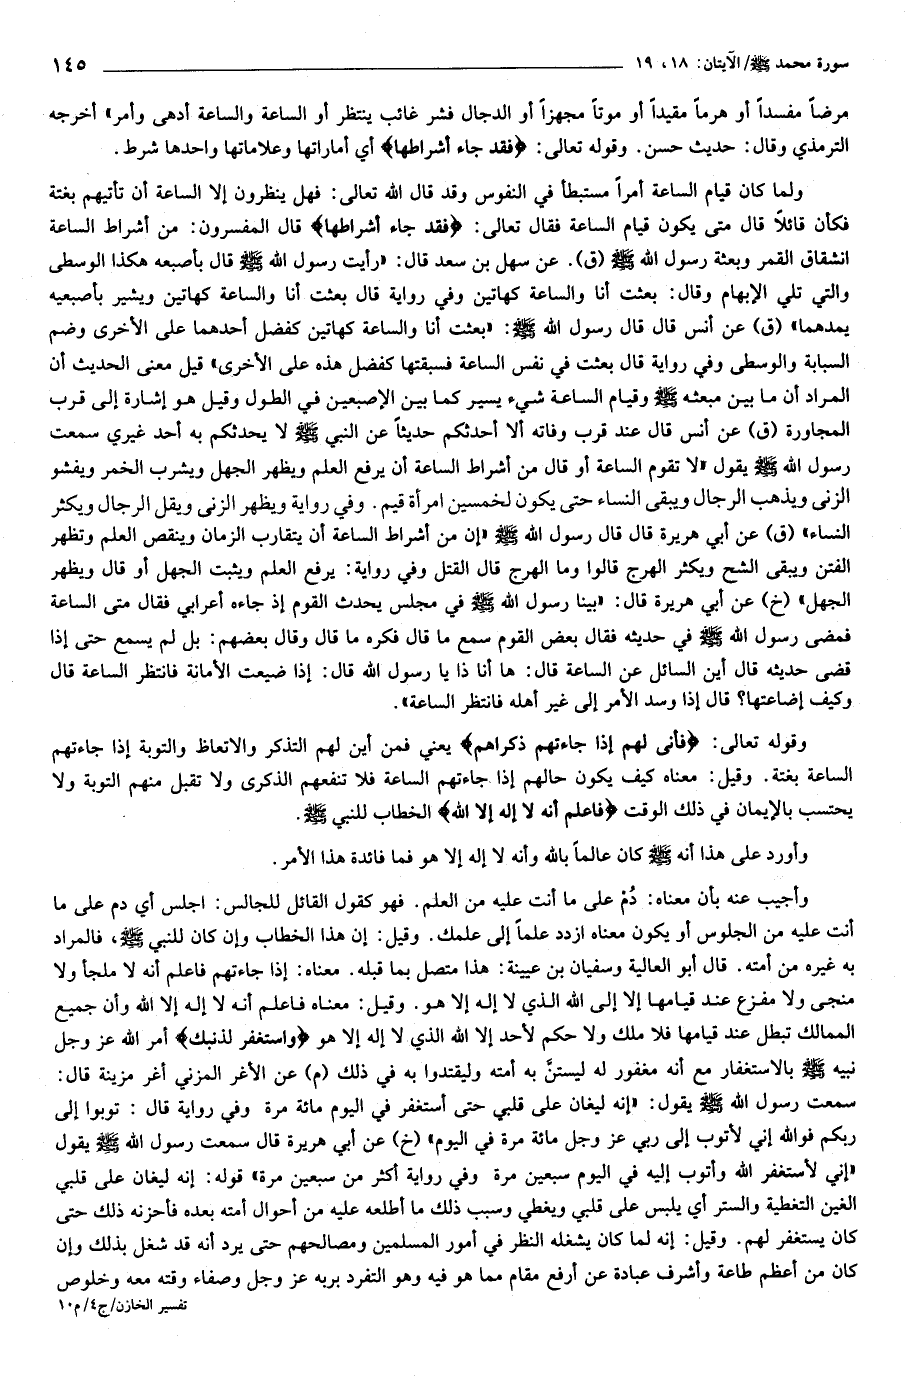 سورة محمد ﷺ/ الآيتان: ١٨، ١٩ ١٤٥
مرضاً مفسداً أو هرماً مقيداً أو موتاً مجهزاً أو الدجال فشر غائب ينتظر أو الساعة والساعة أدهى وأمر» أخرجه
الترمذي وقال: حديث حسن. وقوله تعالى: ﴿فقد جاء أشراطها﴾ أي أماراتها وعلاماتها واحدها شرط.
ولما كان قيام الساعة أمراً مستبطأ في النفوس وقد قال الله تعالى: فهل ينظرون إلا الساعة أن تأتيهم بغتة
فكأن قائلاً قال متى يكون قيام الساعة فقال تعالى: ﴿فقد جاء أشراطها﴾ قال المفسرون: من أشراط الساعة
انشقاق القمر وبعثة رسول الله ﷺ (ق). عن سهل بن سعد قال: «رأيت رسول الله ﷺ قال بأصبعه هكذا الوسطى
والتي تلي الإبهام وقال: بعثت أنا والساعة كهاتين وفي رواية قال بعثت أنا والساعة كهاتين ويشير بأصبعيه
يمدهما» (ق) عن أنس قال قال رسول الله ﷺ: «بعثت أنا والساعة كهاتين كفضل أحدهما على الأخرى وضم
السبابة والوسطى وفي رواية قال بعثت في نفس الساعة فسبقتها كفضل هذه على الأخرى» قيل معنى الحديث أن
المراد أن ما بين مبعثه ﷺ وقيام الساعة شيء يسير كما بين الإصبعين في الطول وقيل هو إشارة إلى قرب
المجاورة (ق) عن أنس قال عند قرب وفاته ألا أحدثكم حديثاً عن النبي ﷺ لا يحدثكم به أحد غيري سمعت
رسول الله ﷺ يقول «لا تقوم الساعة أو قال من أشراط الساعة أن يرفع العلم ويظهر الجهل ويشرب الخمر ويفشو
الزنى ويذهب الرجال ويبقى النساء حتى يكون لخمسين امرأة قيم. وفي رواية ويظهر الزنى ويقل الرجال ويكثر
النساء» (ق) عن أبي هريرة قال قال رسول الله ﷺ «إن من أشراط الساعة أن يتقارب الزمان وينقص العلم وتظهر
الفتن ويبقى الشح ويكثر الهرج قالوا وما الهرج قال القتل وفي رواية: يرفع العلم ويثبت الجهل أو قال ويظهر
الجهل» (خ) عن أبي هريرة قال: «بينا رسول الله ﷺ في مجلس يحدث القوم إذ جاءه أعرابي فقال متى الساعة
فمضى رسول الله ﷺ في حديثه فقال بعض القوم سمع ما قال فكره ما قال وقال بعضهم: بل لم يسمع حتى إذا
قضى حديثه قال أين السائل عن الساعة قال: ها أنا ذا يا رسول الله قال: إذا ضيعت الأمانة فانتظر الساعة قال
وكيف إضاعتها؟ قال إذا وسد الأمر إلى غير أهله فانتظر الساعة».
وقوله تعالى: ﴿فأنى لهم إذا جاءتهم ذكراهم﴾ يعني فمن أين لهم التذكر والاتعاظ والتوبة إذا جاءتهم
الساعة بغتة. وقيل: معناه كيف يكون حالهم إذا جاءتهم الساعة فلا تنفعهم الذكرى ولا تقبل منهم التوبة ولا
يحتسب بالإيمان في ذلك الوقت ﴿فاعلم أنه لا إله إلا الله﴾ الخطاب للنبي ﷺ.
وأورد على هذا أنه ﷺ كان عالماً بالله وأنه لا إله إلا هو فما فائدة هذا الأمر.
وأجيب عنه بأن معناه: دُمْ على ما أنت عليه من العلم. فهو كقول القائل للجالس: اجلس أي دم على ما
أنت عليه من الجلوس أو يكون معناه ازدد علماً إلى علمك. وقيل: إن هذا الخطاب وإن كان للنبي ﷺ، فالمراد
به غيره من أمته. قال أبو العالية وسفيان بن عيينة: هذا متصل بما قبله. معناه: إذا جاءتهم فاعلم أنه لا ملجأ ولا
منجى ولا مفزع عند قيامها إلا إلى الله الذي لا إله إلا هو. وقيل: معناه فاعلم أنه لا إله إلا الله وأن جميع
الممالك تبطل عند قيامها فلا ملك ولا حكم لأحد إلا الله الذي لا إله إلا هو ﴿واستغفر لذنبك﴾ أمر الله عز وجل
نبيه ﷺ بالاستغفار مع أنه مغفور له ليستنَّ به أمته وليقتدوا به في ذلك (م) عن الأغر المزني أغر مزينة قال:
سمعت رسول الله ﷺ يقول: «إنه ليغان على قلبي حتى أستغفر في اليوم مائة مرة وفي رواية قال : توبوا إلى
ربكم فوالله إني لأتوب إلى ربي عز وجل مائة مرة في اليوم» (خ) عن أبي هريرة قال سمعت رسول الله ﷺ يقول
«إني لأستغفر الله وأتوب إليه في اليوم سبعين مرة وفي رواية أكثر من سبعين مرة» قوله: إنه ليغان على قلبي
الغين التغطية والستر أي يلبس على قلبي ويغطي وسبب ذلك ما أطلعه عليه من أحوال أمته بعده فأحزنه ذلك حتى
كان يستغفر لهم. وقيل: إنه لما كان يشغله النظر في أمور المسلمين ومصالحهم حتى يرد أنه قد شغل بذلك وإن
كان من أعظم طاعة وأشرف عبادة عن أرفع مقام مما هو فيه وهو التفرد بربه عز وجل وصفاء وقته معه وخلوص
تفسير الخازن/ج٤/م١٠